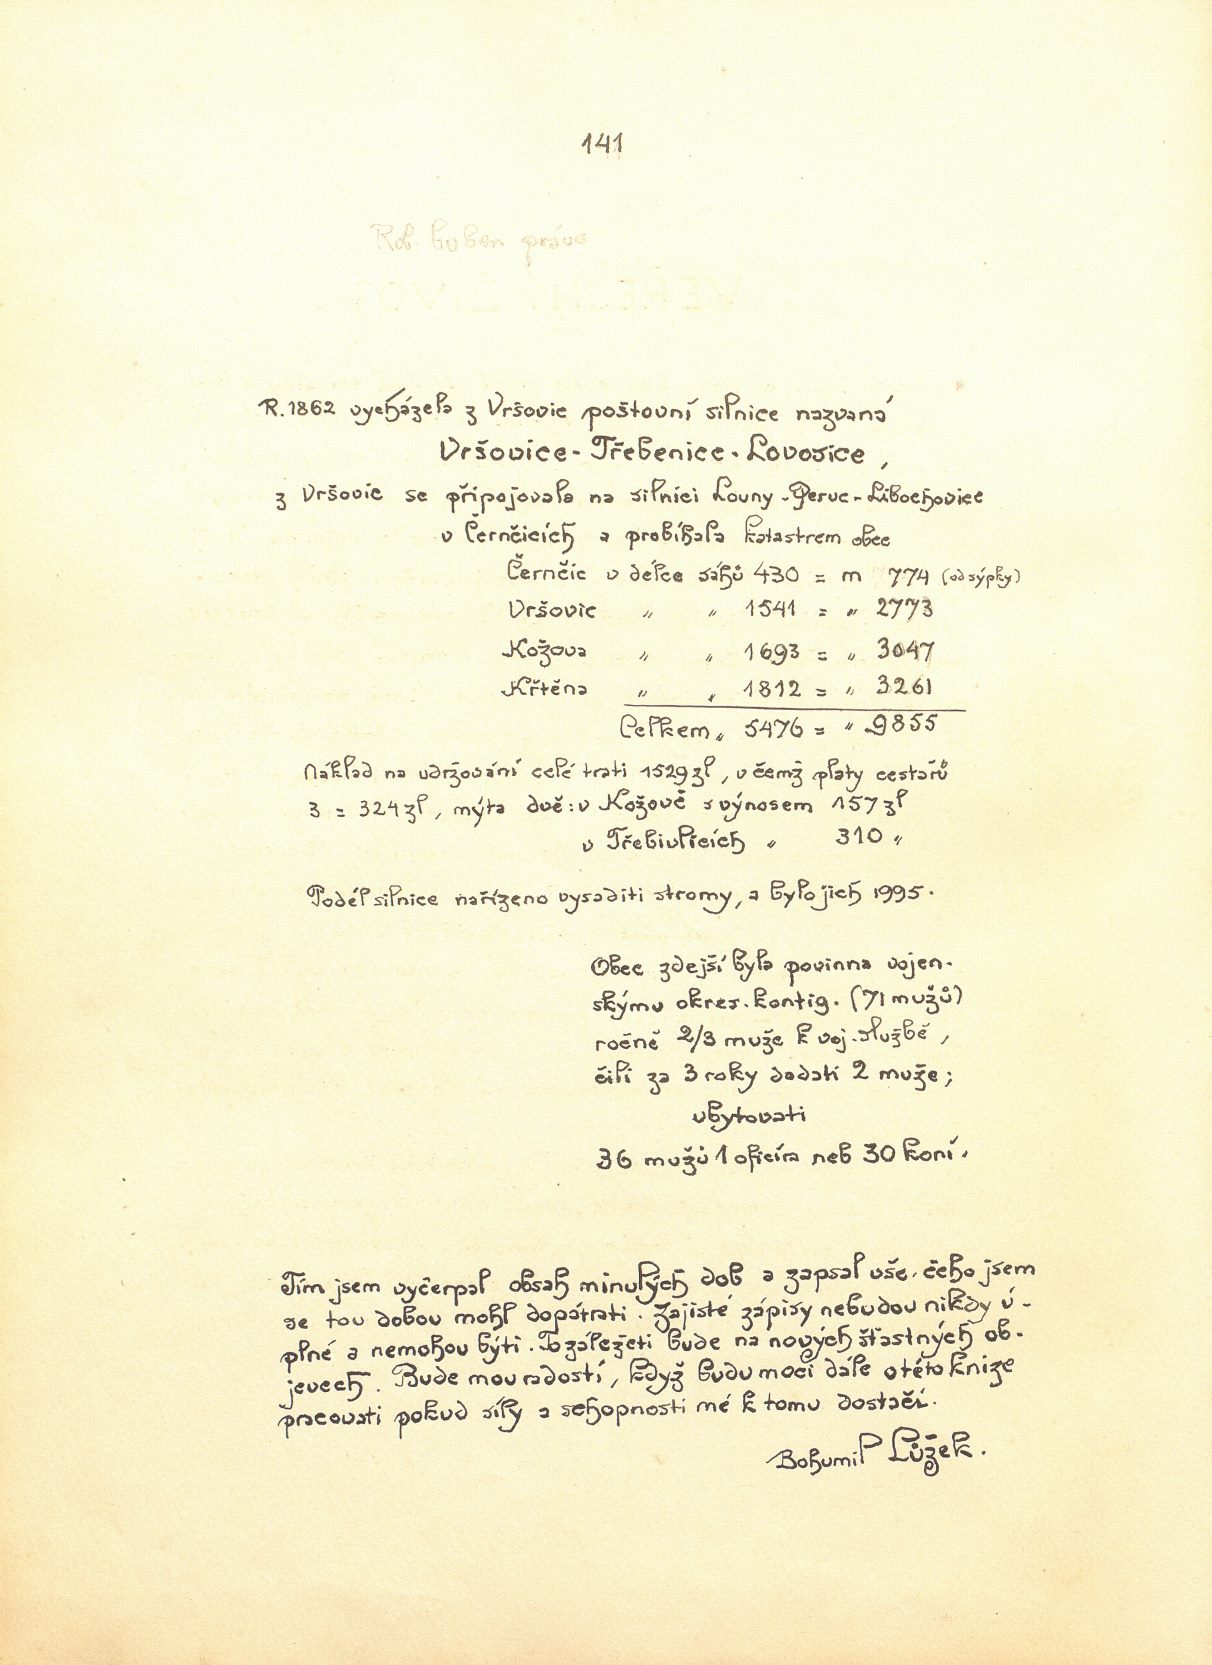 141
R. 1862 vycházela z Vršovic poštovní silnice nazvaná
Vršovice - Třebenice - Lovosice,
z Vršovic se připojovala na silnici Louny - Peruc - Libochovice
v Černčicích a probíhala katastrem obce
Černčic v délce sáhů 430 = m 774 (od sýpky)
Vršovic " " 1541 = " 2773
Kožova " " 1693 = " 3047
Křtěna " " 1812 = " 3261
Celkem " 5476 = " 9855
Náklad na udržování celé trati 1529 zl, v čemž platy cestářů
3 = 324 zl, mýta dvě: v Kožově s výnosem 157 zl
v Třebivlicích " 310 "
Podél silnice nařízeno vysaditi stromy, a bylo jich 1995.
Obec zdejší byla povinna vojen-
skýmu okres. kontig. (71 mužů)
ročně 2/3 muže k voj. službě,
čili za 3 roky dodati 2 muže;
ubytovati
36 mužů 1 oficíra neb 30 koní.
Tím jsem vyčerpal obsah minulých dob a zapsal vše, čeho jsem
se tou dobou mohl dopátrati. Zajisté zápisy nebudou nikdy ú-
plné a nemohou býti. To záležeti bude na nových šťastných ob-
jevech. Bude mou radostí, když budu moci dále o této knize
pracovati pokud síly a schopnosti mé k tomu dostačí.
Bohumil Lůžek.